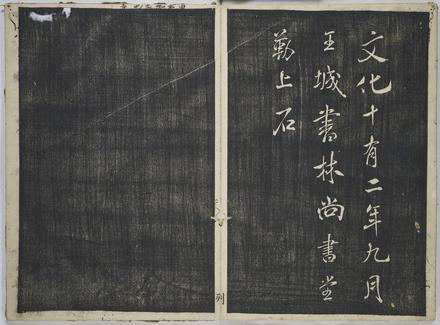 文化十有二年九月
王城書林尚書堂
勒上石
列